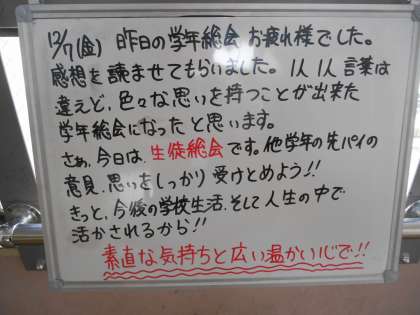 12/7(金) 昨日の学年総会 お疲れ様でした。
感想を読ませてもらいました。1人1人言葉は
違えど、色々な思いを持つことが出来た
学年総会になったと思います。
さぁ、今日は、生徒総会です。他学年の先パイの
意見、思いをしっかり受けとめよう!!
きっと、今後の学校生活、そして人生の中で
活かされるから!!
素直な気持ちと広い温かい心で!!